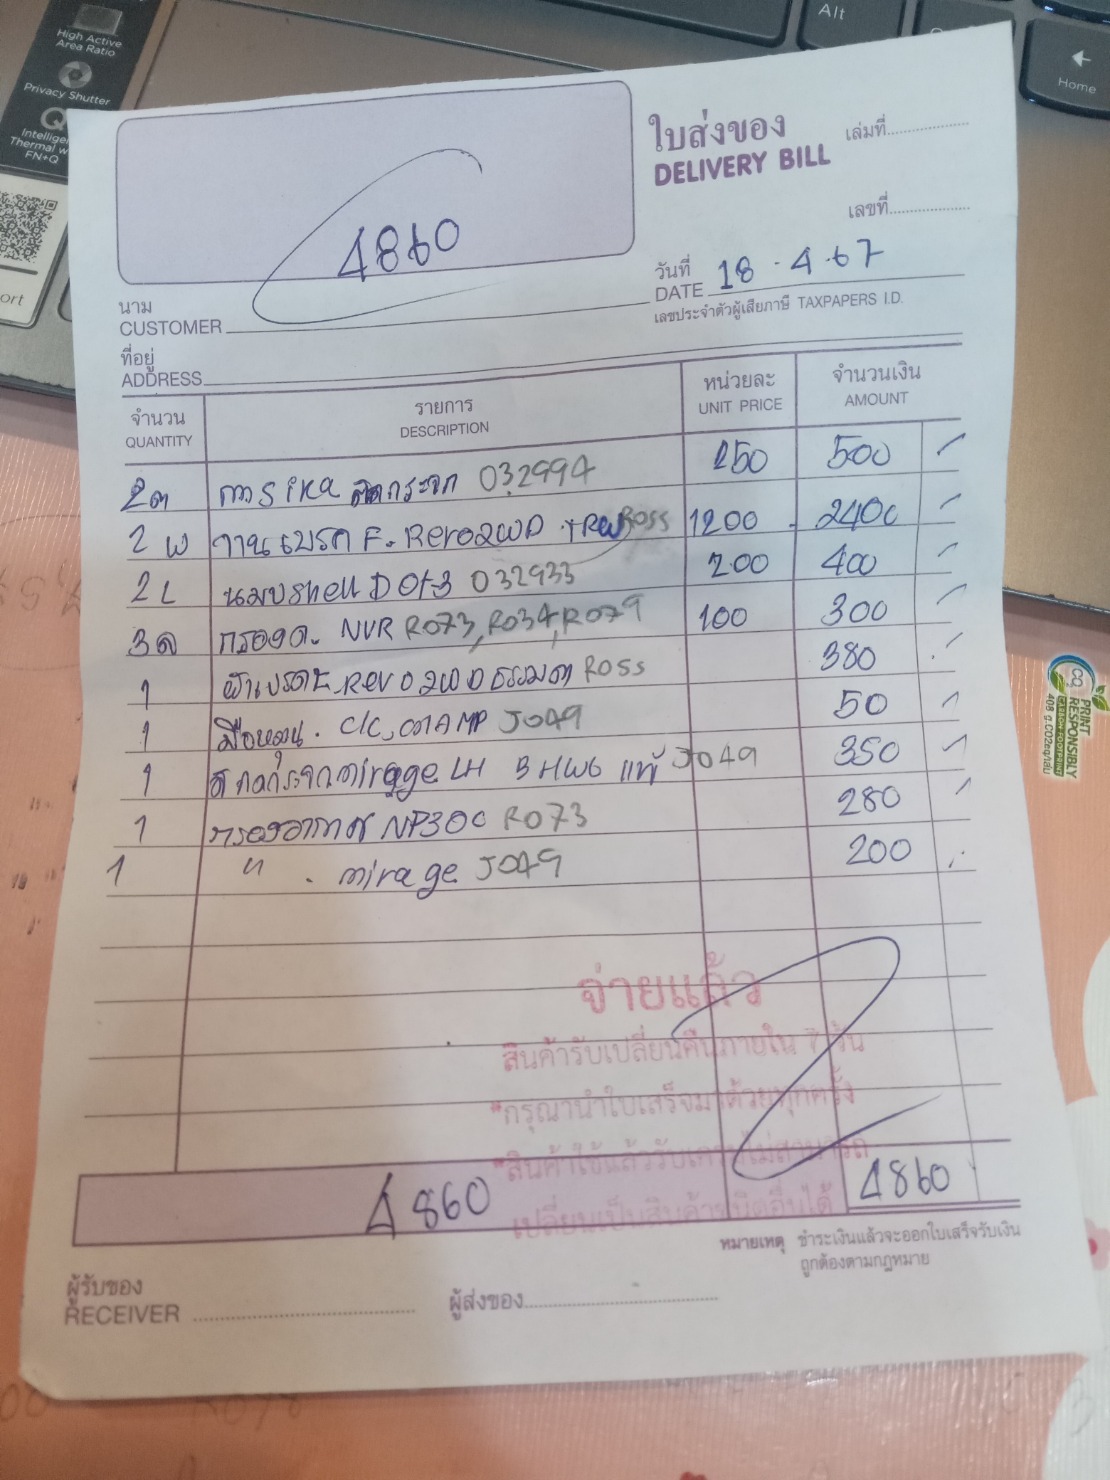 High Active
Area Ratio
Privacy Shutter
Thermal
FN+Q
ort
Alt
Home
ใบส่งของ
DELIVERY BILL
เล่มที่
เลขที่
4860
วันที่
DATE 18 . 4 . 67
เลขประจำตัวผู้เสียภาษี TAXPAPERS I.D.
นาม
CUSTOMER
ที่อยู่
ADDRESS
จำนวน รายการ หน่วยละ จำนวนเงิน
QUANTITY DESCRIPTION UNIT PRICE AMOUNT
2 กาว sika ติดกระจก 032994 250 500
2 จานเบรค F. Revo2WD TRW R055 1200 2400
2L shell Dot3 032933 200 400
3 NVR R073, R034, R079 100 300
1 ผ้าเบรค Revo 2WD ธรรมดา R055 380
1 มือหมุน J049 50
1 mirage LH แท้ J049 350
1 กรองอากาศ NP300 R073 280
1 " . mirage J049 200
จ่ายแล้ว
สินค้ารับเปลี่ยนคืนภายใน 7 วัน
*กรุณานำใบเสร็จมาด้วยทุกครั้ง
4860 4860
หมายเหตุ ชำระเงินแล้วจะออกใบเสร็จรับเงิน
ถูกต้องตามกฎหมาย
ผู้รับของ
RECEIVER
ผู้ส่งของ
PRINT
RESPONSIBLY